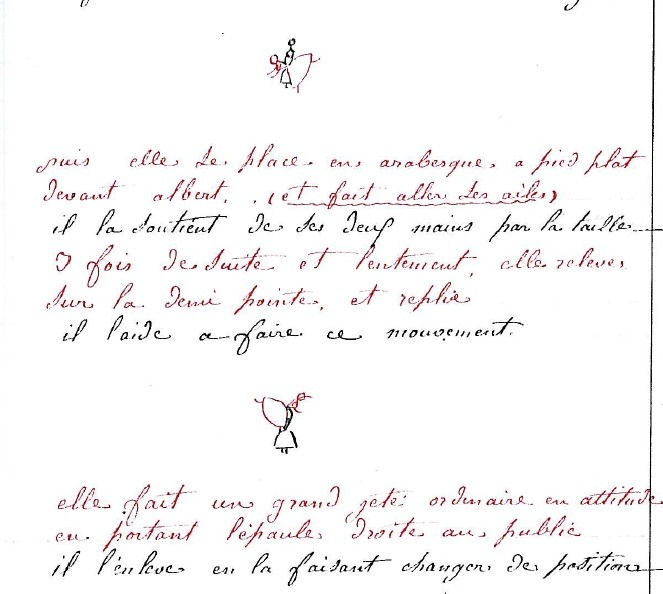 puis elle se place en arabesque, a pied plat
devant albert. (et fait aller ses ailes)
il la soutient de ses deux mains par la taille
3 fois de suite et lentement, elle releve,
sur la demi pointe, et replie
il l'aide a faire ce mouvement.
elle fait un grand jeté ordinaire en attitude
en portant l'épaule droite au public
il l'enleve en la faisant changer de position